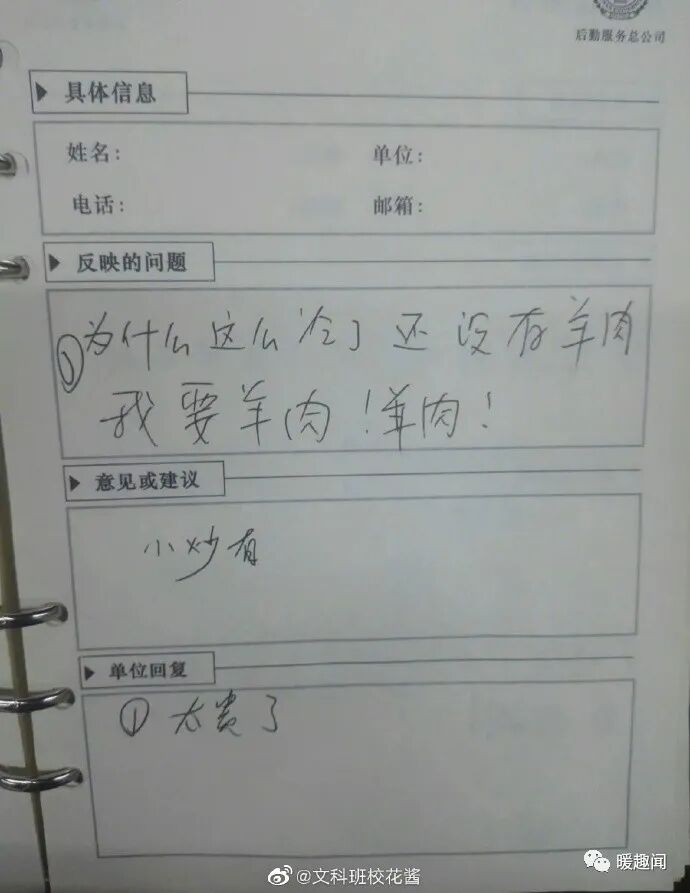 后勤服务总公司
具体信息
姓名： 单位：
电话： 邮箱：
反映的问题
①为什么这么冷了还没有羊肉
我要羊肉！羊肉！
意见或建议
小炒有
单位回复
①太贵了
@文科班校花酱
暖趣闻